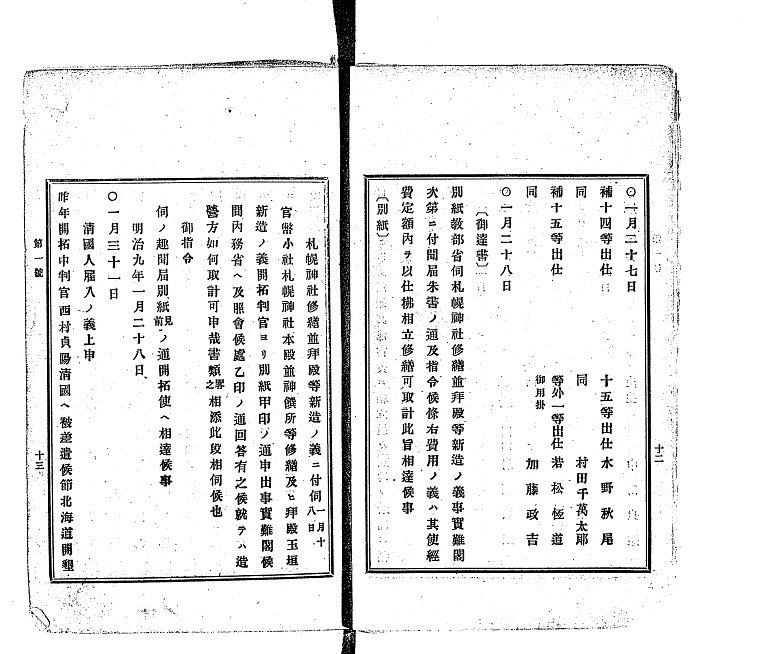 〇一月二十七日
補十四等出仕　十五等出仕　水野秋尾
同　同　村田千萬太郎
補十五等出仕　等外一等出仕　若松恆道
同　御用掛　加藤政吉
〇一月二十八日
〔御達書〕
別紙教部省伺札幌神社修繕並拜殿等新造ノ義事實難閣
次第ニ付聞届朱書ノ通及指令候條右費用ノ義ハ其使經
費定額內ヲ以仕拂相立修繕可取計此旨相達候事
〔別紙〕
十二
札幌神社修繕並拜殿等新造ノ義ニ付伺一月十八日
官幣小社札幌神社本殿並神饌所等修繕及ヒ拜殿玉垣
新造ノ義開拓判官ヨリ別紙甲印ノ通申出事實難閣候
間內務省ヘ及照會候處乙印ノ通回答有之候就テハ造
營方如何取計可申哉書類畧之相添此段相伺候也
御指令
伺ノ趣聞届別紙見前ノ通開拓使ヘ相達候事
明治九年一月二十八日
〇一月三十一日
清國人雇入ノ義上申
昨年開拓中判官西村貞陽清國ヘ被差遣候節北海道開墾
第一號
十三